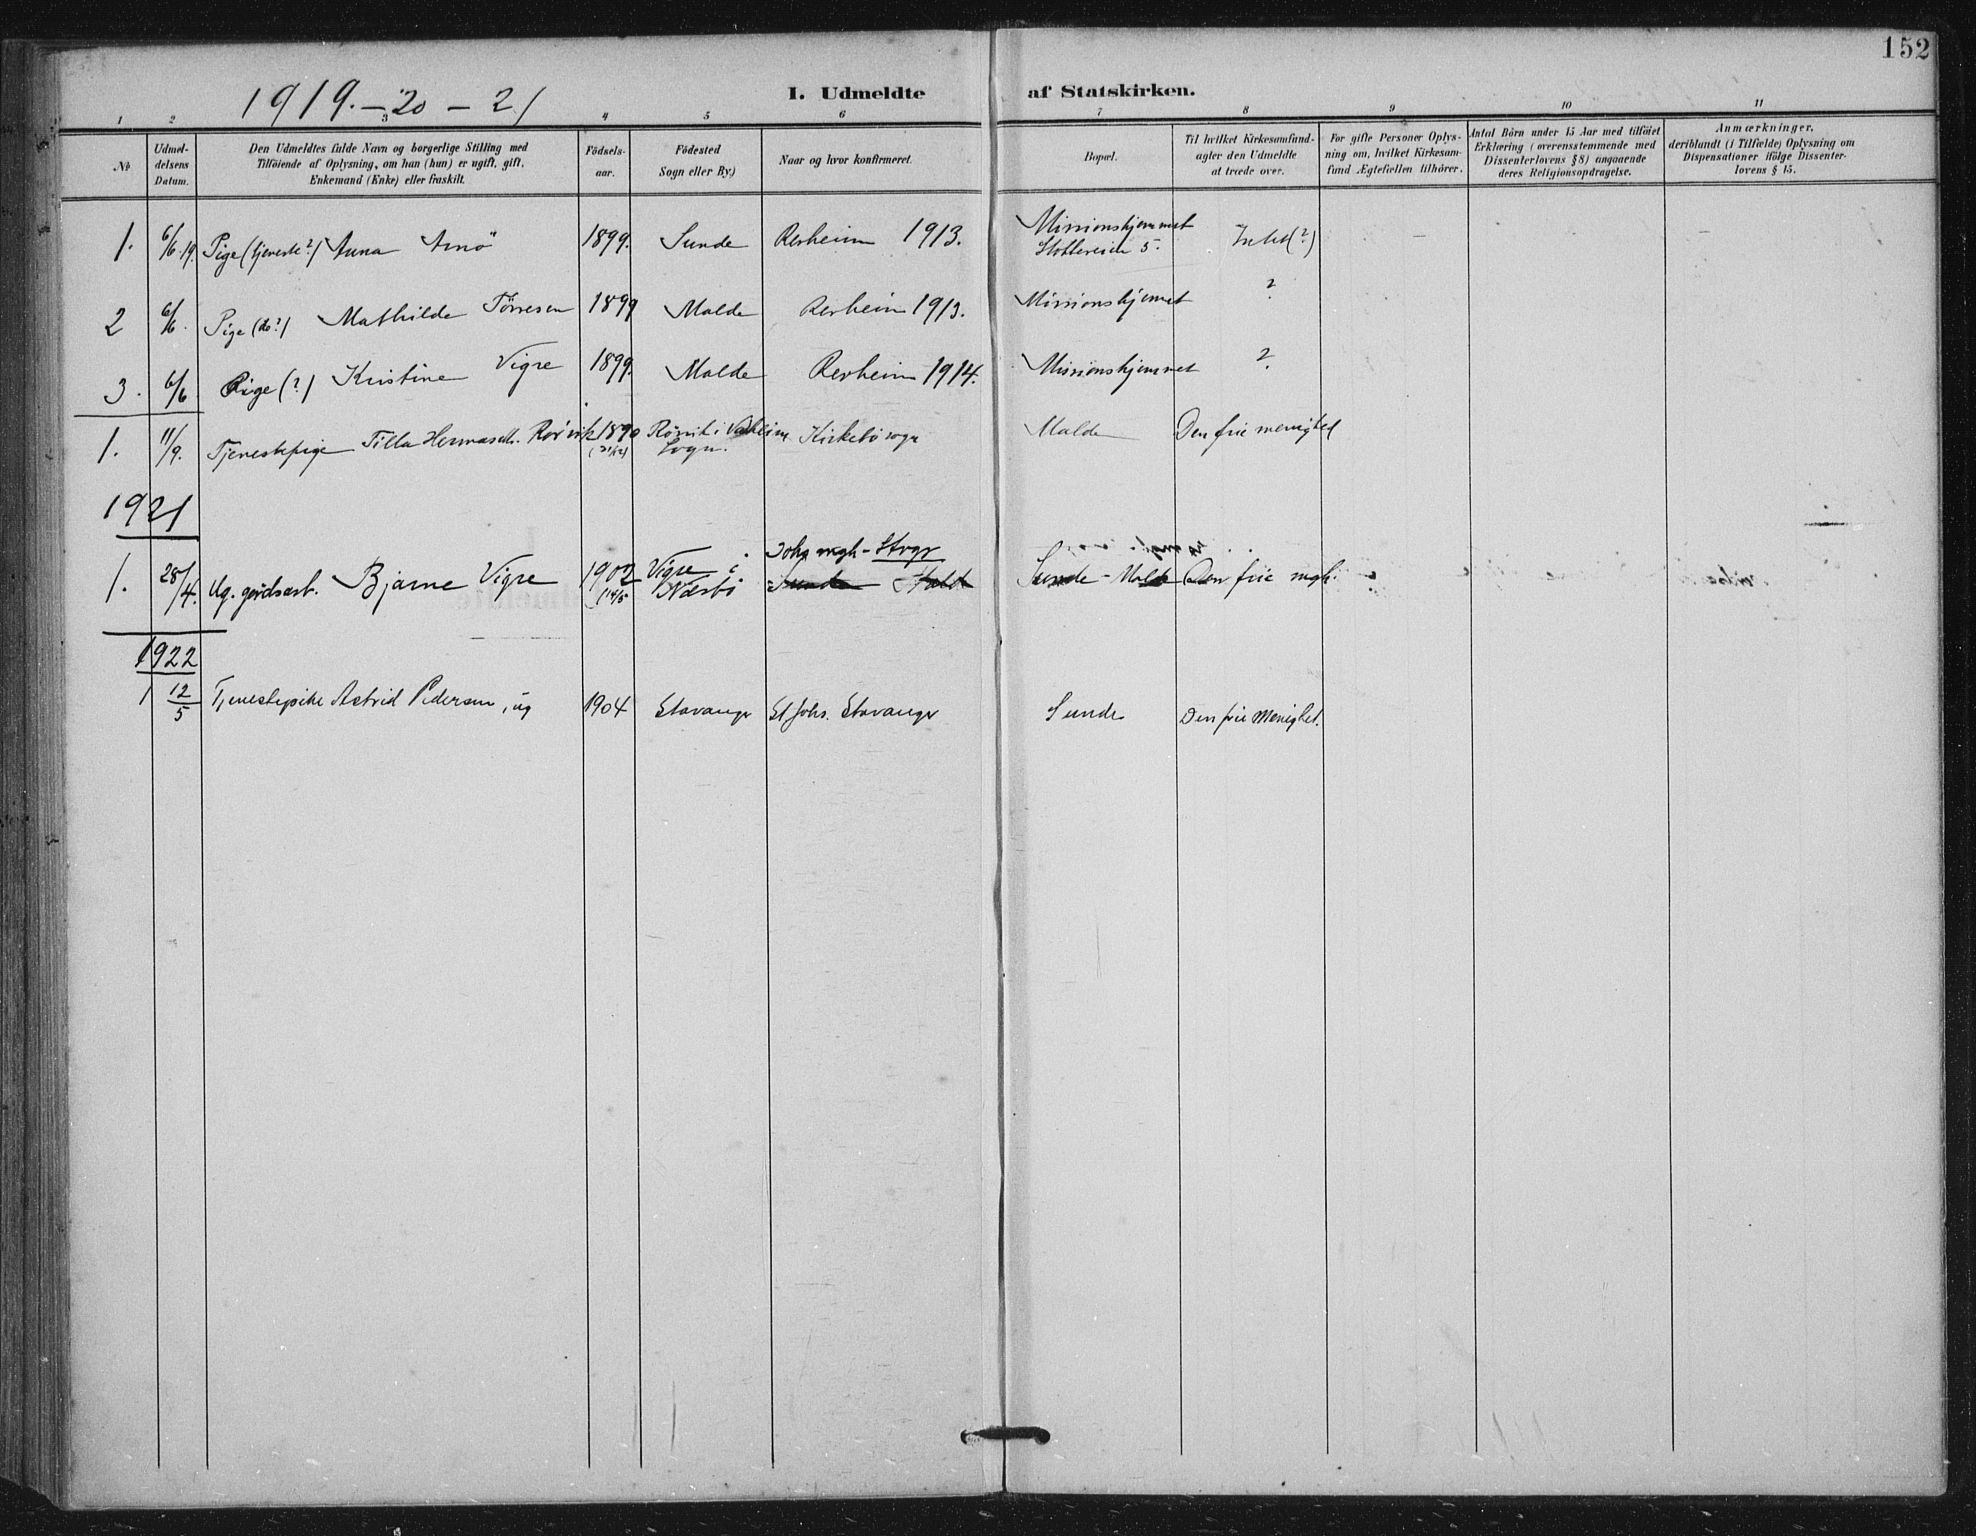 152
1919.-20-21
I. Udmeldte af Statskirken.
1 2 3 4 5 6 7 8 9 10 11
№
Udmeldelsens Datum.
Den Udmeldtes fulde Navn og borgerlige Stilling med
Tilföiende af Oplysning, om han (hun) er ugift, gift,
Enkemand (Enke) eller fraskilt.
Födselsaar.
Födested
Sogn eller By.)
Naar og hvor konfirmeret.
Bopæl.
Til hvilket Kirkesamfund-
agter den Udmeldte
at træde over.
For gifte Personer Oplys-
ning om, hvilket Kirkesam-
fund Ægtefællen tilhörer.
Antal Börn under 15 Aar med tilföiet
Erklæring (overensstemmende med
Dissenterlovens § 8) angaaende
deres Religionsopdragelse.
Anmærkninger,
deriblandt (i Tilfælde) Oplysning om
Dispensationer ifölge Dissenter-
lovens § 15.
1. 6/6.19. Pige (tjeneste?) Anna Arnö 1899. Sunde Revheim 1913. Missionshjemmet Intet (?) - -
5.
2 6/6. Pige (do?) Mathilde Törresen 1899 Malde Revheim 1913. Missionshjemmet ?
3. 6/6 Pige (?) Kristine Vigre 1899. Malde Revheim 1914. Missionshjemmet ?
1. 11/9. Tjenestepige Tilla Rörvik 1890 Rörvik i Vadheim Kirkebö sogn Malde Den frie menighed
Sogn.
1921
1. 28/4. Ug. gårdsarb. Bjarne Vigre 1902 Vigre i Johs mgh - Stvgr Sunde - Malde Den frie mgh.
(14/5 Nærbö Sunde
1922
1 12/5 Tjenestepike Astrid Pedersen, ug 1904 Stavanger St Johs. Stavanger Sunde Den frie Menighet.